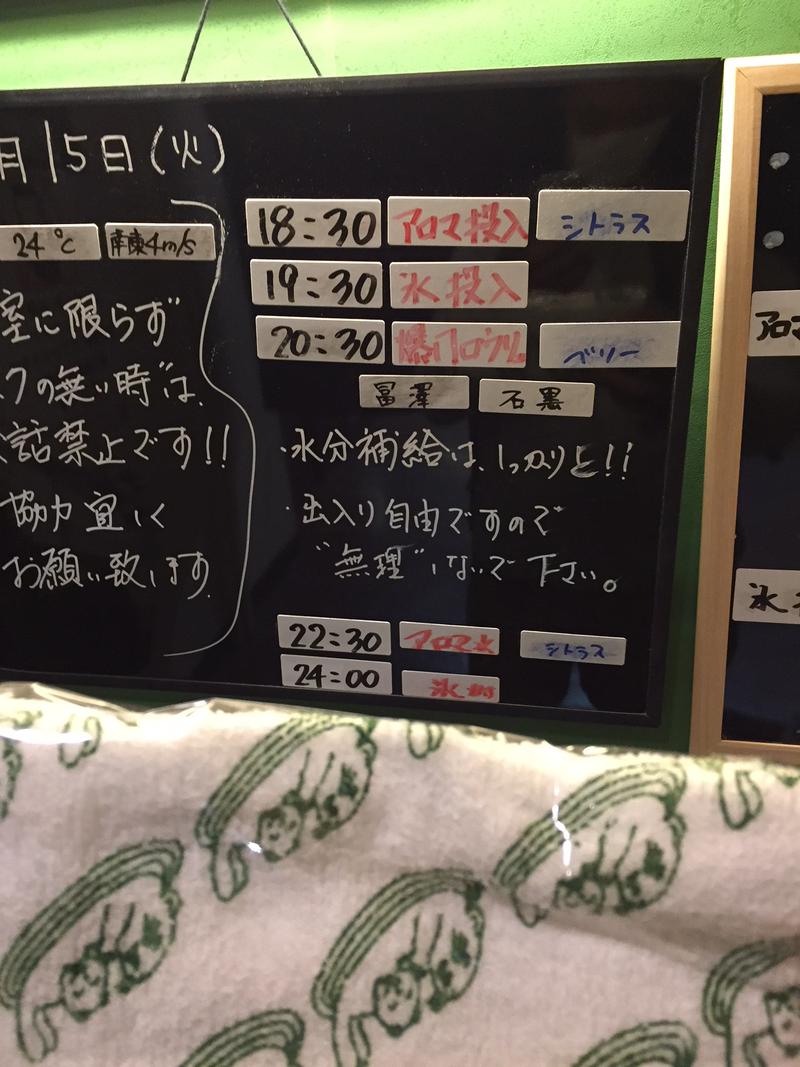 月15日(火)
24℃ 南東4m/s
室に限らず
クの無い時"は、
話禁止です!!
協力宜しく
お願い致します
18:30 アロマ投入 シトラス
19:30 氷投入
20:30 爆門ロウリュ ベリー
冨澤 石黒
・水分補給は、しっかりと!!
・出入り自由ですので
"無理"しないで下さい。
22:30 アロマ水 シトラス
24:00
アロマ
氷